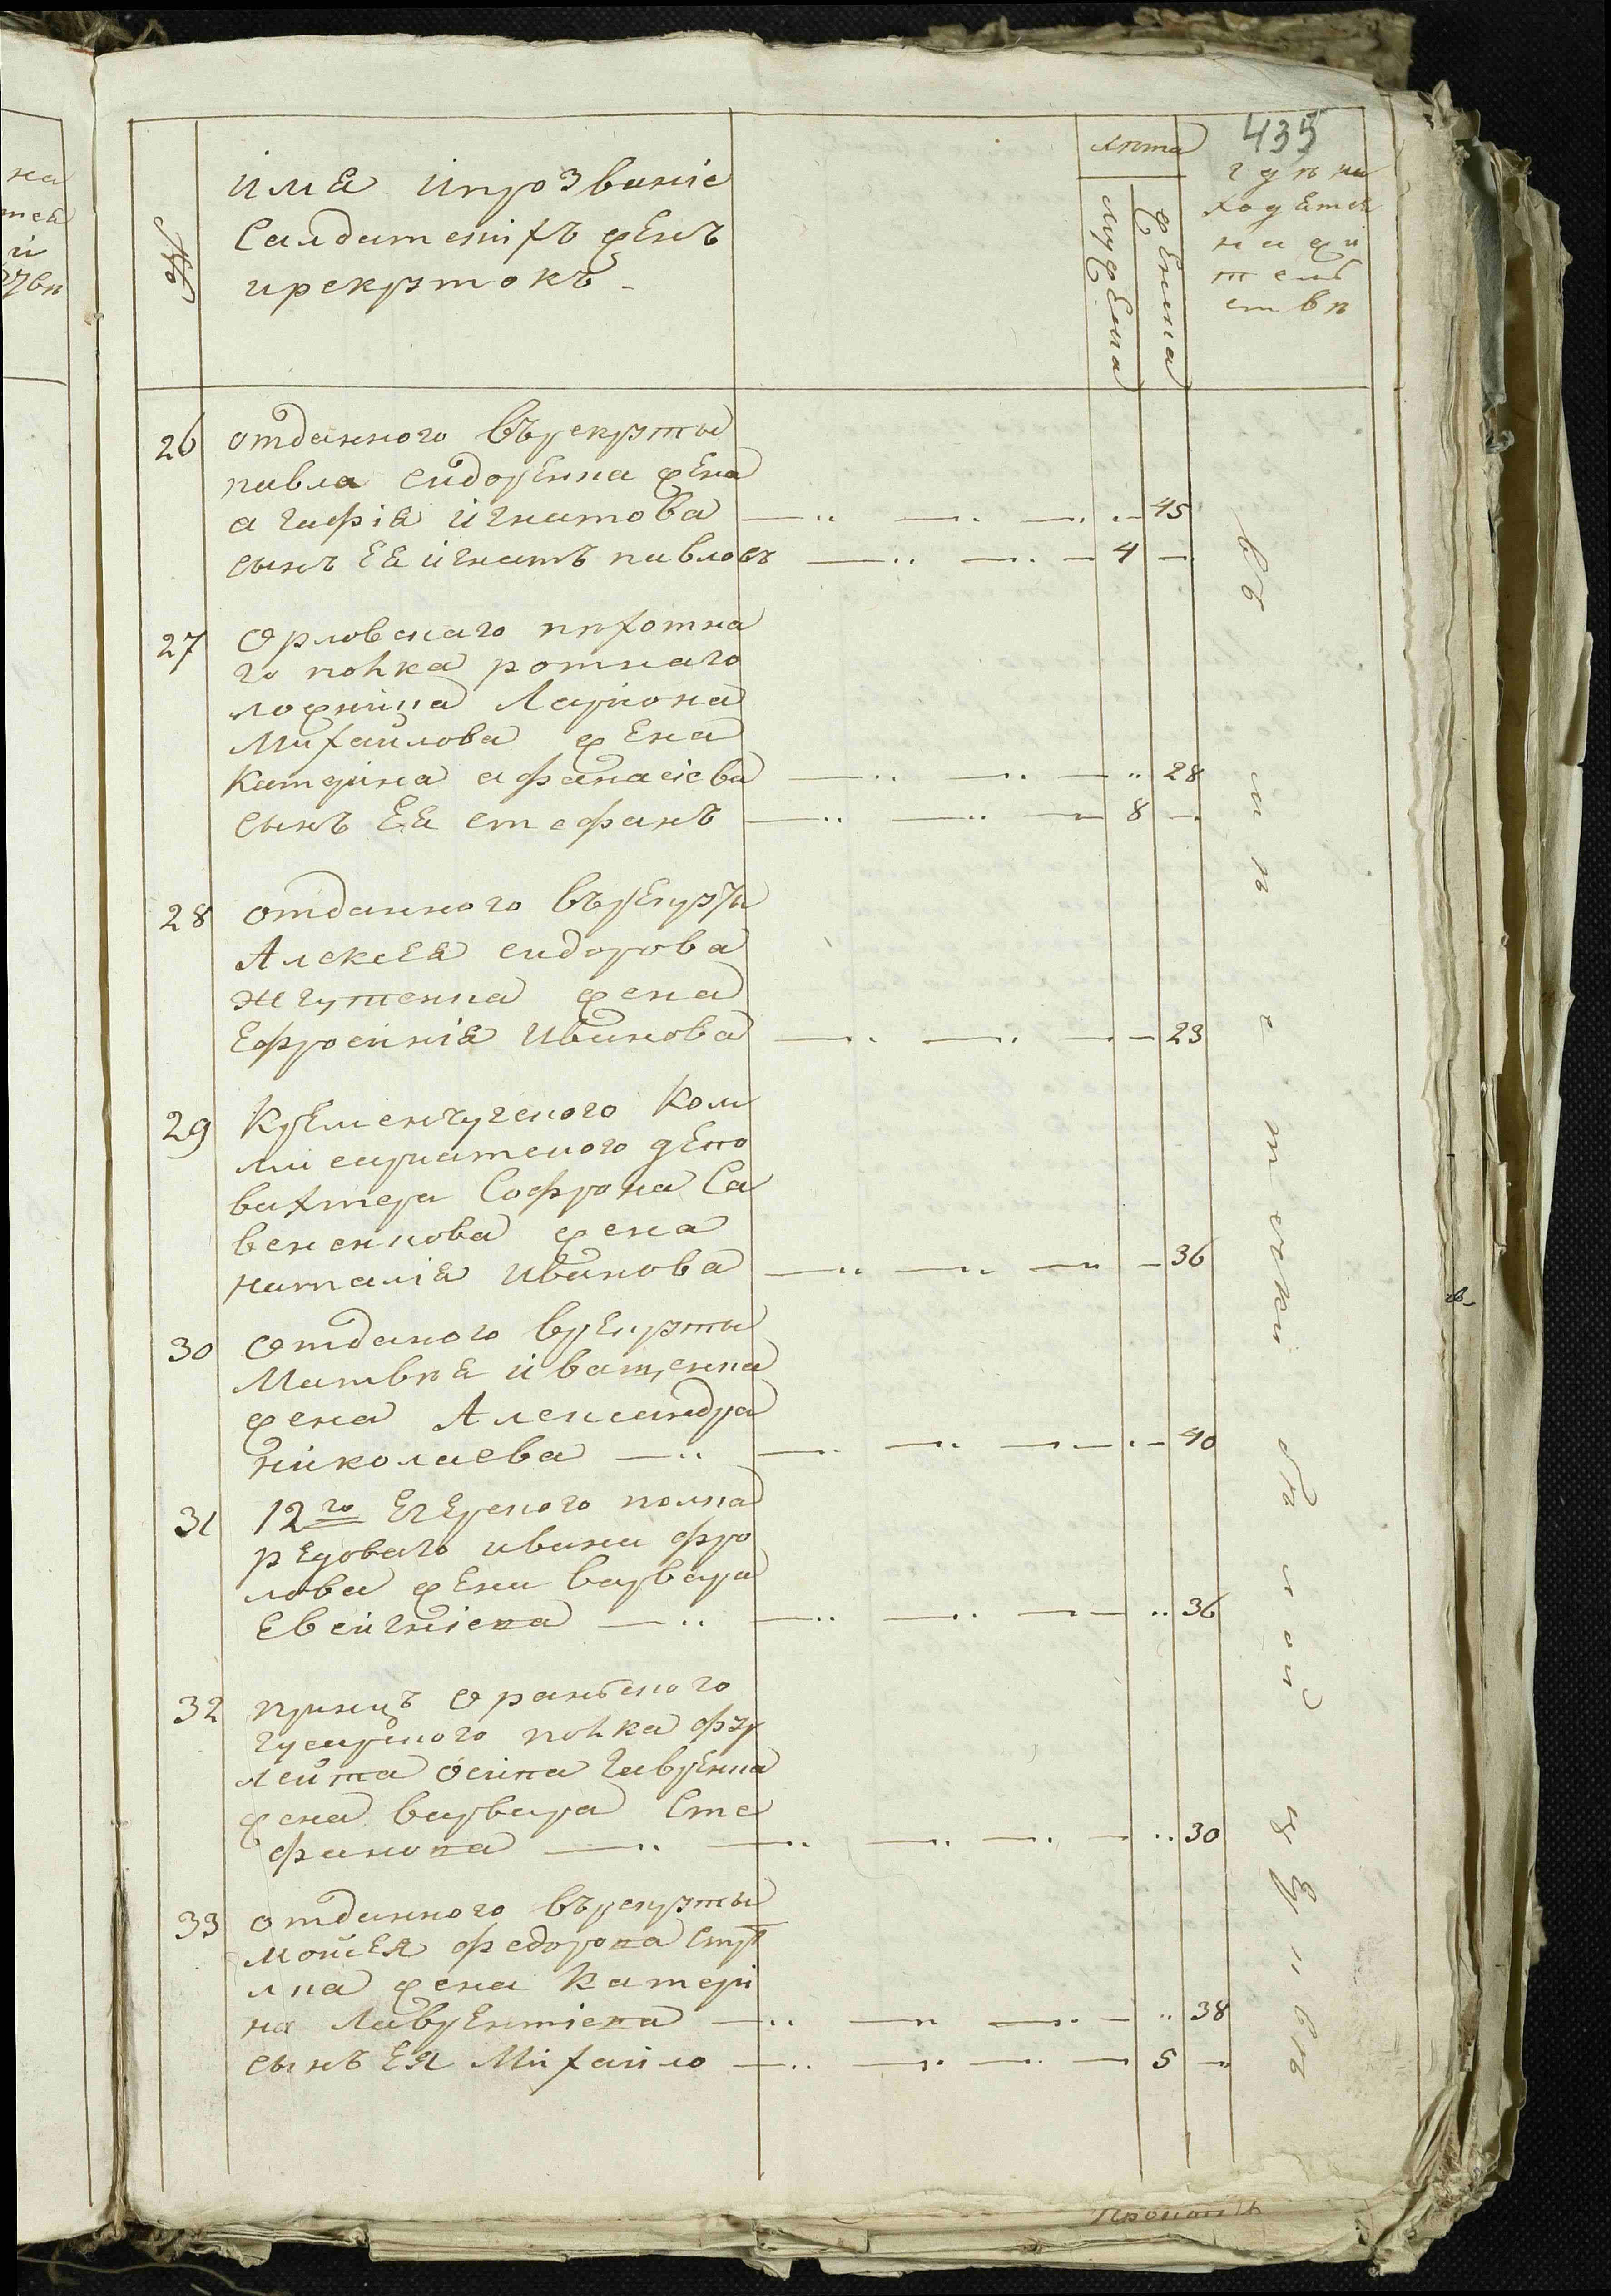 435
№
имя ипрозвание
Салдатскихъ женъ
ирекрутокъ
лета
мужеска
женска
где на
ходятся
на жи
тель
стве
26 отданного върекруты
павла сидоренка жена
агафия игнатова 45
сынъ ея игнатъ павловъ 4
27 Орловскаго пехотна
го полка ротнаго
ложника Лариона
Михайлова жена
Катрина афанасиева 28
сынъ Ея стефанъ 8
28 отданного върекруты
Алексея сидорова
жгутенка жена
Ефросиния Иванова 23
29 Кременчугского Ком
мисариатского депо
вахтера Софрона Са
венкова жена
наталия Иванова 36
30 Отданого врекруты
Матвея иващенка
жена Александра
николаева 40
31 12го Егерского полка
редоваго ивана фро
лова жена варвара
Евсигниева 36
32 принцъ Оранского
гусарского полка фур
лейта осипа Гавренка
жена варвара Сте
фанова 30
33 отданного върекруты
мойсея федорова
жена Катери
на Лаврентиева 38
сынъ ея Михайло 5
въ